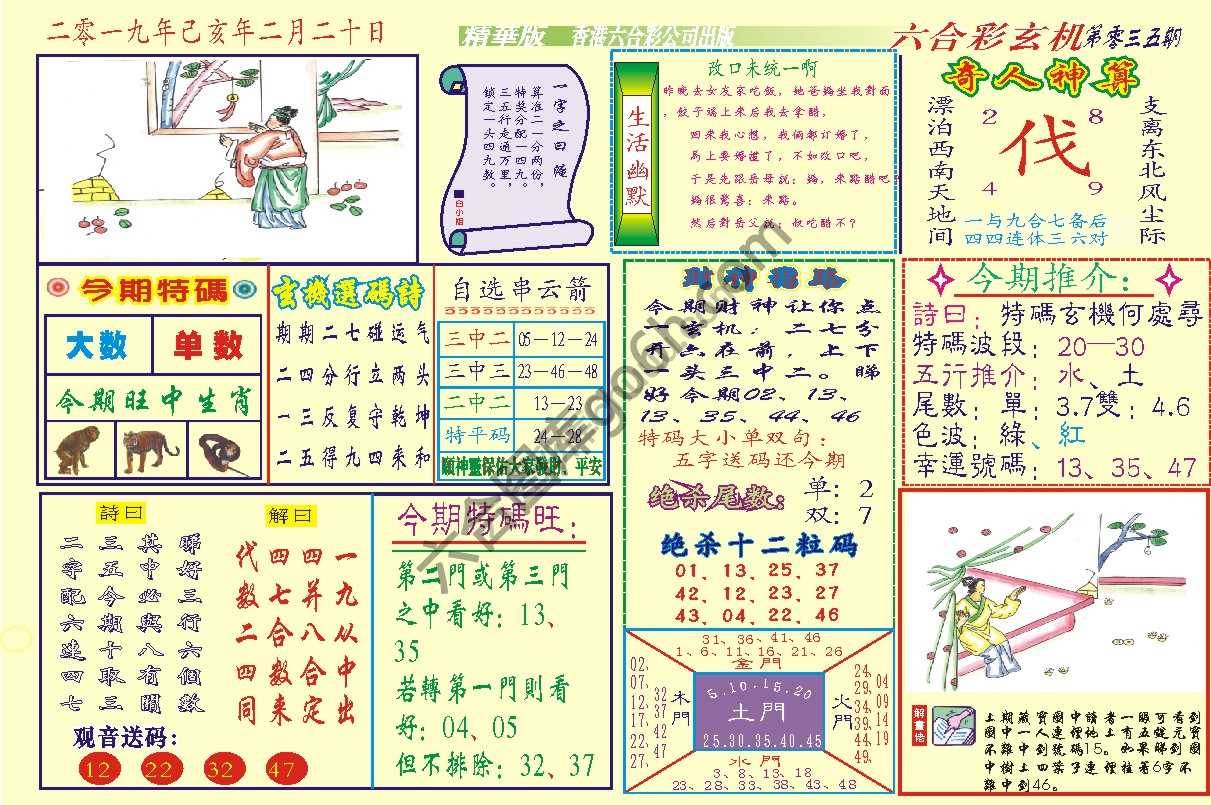 二零一九年己亥年二月二十日
精華版 香港六合彩公司出版
六合彩玄机第零三五期
一字之曰隆
算准二一分两份，
特奖分配一四九。
三五行走通万里，
锁定一头四九数。
白小姐
生活幽默
改口未统一啊
昨晚去女友家吃飯，她爸媽坐我對面
，饺子端上来后我去拿醋，
回来我心想，我俩都订婚了，
馬上要婚禮了，不如改口吧，
于是先跟岳母說：媽，来點醋吧？
媽很驚喜：来點。
然后對岳父説：叔吃醋不？
奇人神算
漂泊西南天地间
支离东北风尘际
2 8
伐
4 9
一与九合七备后
四四连体三六对
今期特碼
大数 单数
今期旺中生肖
玄機選碼詩
期期二七碰运气
二四分行立两头
一三反复守乾坤
二五得九四来和
自选串云箭
三中二 05—12—24
三中三 23—46—48
二中二 13—23
特平码 24—28
願神靈保佑大家發财、平安
今期财神让你点
一玄机，二七分
开六在前，上下
一头三中二。睇
好今期02、13、
13、35、44、46
特码大小单双句：
五字送码还今期
绝杀尾数： 单：2
双：7
绝杀十二粒码
01、13、25、37
42、12、23、27
43、04、22、46
今期推介：
詩曰：特碼玄機何處尋
特碼波段：20—30
五行推介：水、土
尾數：單：3.7雙：4.6
色波：綠、紅
幸運號碼：13、35、47
詩曰
二字配六連四七
三五今期十取三
其中必與八有關
睇好三行六個數
解曰
代数二四同
四七合数来
四并八合定
一九从中出
观音送码：
12 22 32 47
今期特碼旺：
第二門或第三門
之中看好：13、
35
若轉第一門則看
好：04、05
但不排除：32、37
31、36、41、46
1、6、11、16、21、26
金門
02、07、12、17、22、27、
32、37、42、47
木門
5.10.15.20
土門
25.30.35.40.45
火門
24、29、34、39、44、49、
04、09、14、19
水門
3、8、13、18
23、28、33、38、43、48
解畫悟
上期藏寶圖中讀者一眼可看到
圖中一人連裡地上有五錠元寶
不難中到號碼15。如果睇到圖
中樹上四葉子連裡柱著6字不
難中到46。